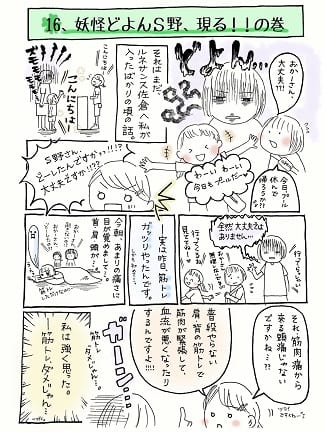 16、妖怪どよんS野、現る!!の巻
それはまだ、
ルネサンス佐倉へ私が
入ったばかりの頃の話。
おかーさん、
大丈夫?!!
わーい わーい
今日もプールだー
今日プール
休んで
帰ろうか??
こんにちは
こんにちは
S野さん、
どーしたんですかっ!!!?
大丈夫ですかっ!!?
全然大丈夫では
ありません…
行ってらっしゃい
―実は昨日、筋トレ
ガッツリやったんです。
今朝、あまりの痛さに
目が覚めまして…。
首、肩、頭が…
それ、筋肉痛から
来る頭痛じゃない
ですかね…??
普段やらない
肩、背の筋トレで
筋肉が緊張して、
血流が悪くなったり
するんですよ!!!
ガーン…
筋トレ
ダメじゃん…
私は強く思った。
筋トレダメじゃん。